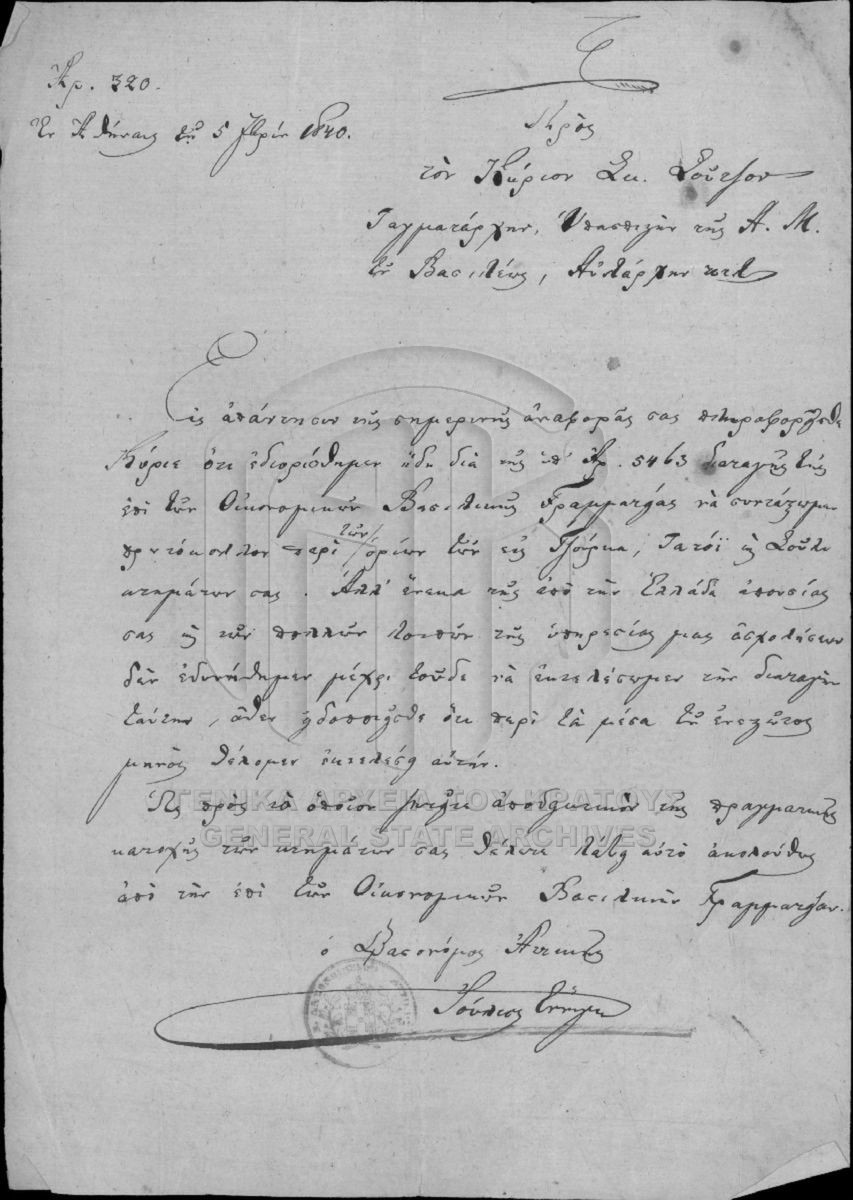 Ἀρ. 320.
Ἐν Ἀθήναις τῇ 5 7βρίου 1840.
Πρὸς
τὸν Κύριον Σκ. Σοῦτσον
Ταγματάρχην, Ὑπασπιστὴν τῆς Α. Μ.
τοῦ Βασιλέως, Αὐλάρχην κτλ
Εἰς ἀπάντησιν τῆς σημερινῆς ἀναφορᾶς σας πληροφορεῖσθε
Κύριε ὅτι ἐδιορίσθημεν ἤδη διὰ τῆς ὑπ' Ἀρ. 5463 διαταγῆς τῆς
ἐπὶ τῶν Οἰκονομικῶν Βασιλικῆς Γραμματείας νὰ συντάξωμεν
πρωτόκολλον περὶ τῶν ὁρίων τῶν εἰς Τατόϊ καὶ
κτημάτων σας. Ἀλλ' ἕνεκα τῆς ἀπὸ τὴν Ἑλλάδα ἀπουσίας
σας καὶ τῶν πολλῶν λοιπῶν τῆς ὑπηρεσίας μας ἀσχολήσεων
δὲν ἐδυνήθημεν μέχρι τοῦδε νὰ ἐκτελέσωμεν τὴν διαταγὴν
ταύτην, ὅθεν εἰδοποιεῖσθε ὅτι περὶ τὰ μέσα τοῦ ἐνεστῶτος
μηνὸς θέλομεν ἐκτελέσει αὐτήν.
Ὡς πρὸς τὸ ὁποῖον ζητεῖτε ἀποδεικτικὸν τῆς πραγματικῆς
κατοχῆς τῶν κτημάτων σας θέλετε λάβει αὐτὸ ἀκολούθως
ἀπὸ τὴν ἐπὶ τῶν Οἰκονομικῶν Βασιλικὴν Γραμματείαν.
ὁ Δασονόμος Ἀττικῆς
ΓΕΝΙΚΑ ΑΡΧΕΙΑ ΤΟΥ ΚΡΑΤΟΥΣ
GENERAL STATE ARCHIVES